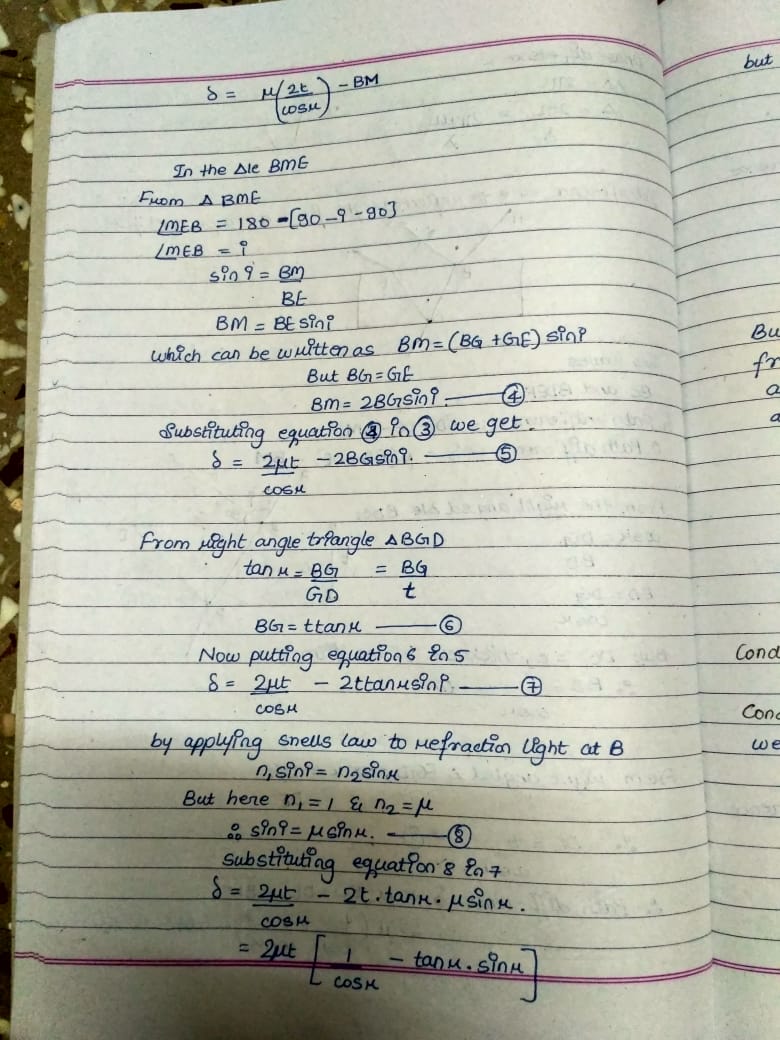 δ = μ(2t/cosr) - BM
In the Δle BME
From Δ BME
∠MEB = 180 - [90 - i - 90]
∠MEB = i
sin i = BM/BE
BM = BE sin i
which can be written as BM = (BG + GE) sin i
But BG = GE
BM = 2BG sin i. ④
Substituting equation ④ in ③ we get
δ = 2μt/cosr - 2BG sin i. ⑤
From right angle triangle ΔBGD
tan r = BG/GD = BG/t
BG = t tan r ⑥
Now putting equation 6 in 5
δ = 2μt/cosr - 2t tan r sin i. ⑦
by applying snells law to refraction light at B
n₁ sin i = n₂ sin r
But here n₁ = 1 & n₂ = μ
∴ sin i = μ sin r. ⑧
substituting equation 8 in 7
δ = 2μt/cosr - 2t . tan r . μ sin r.
= 2μt [1/cosr - tan r . sin r]
but
Bu
fr
a
a
Cond
Conc
we